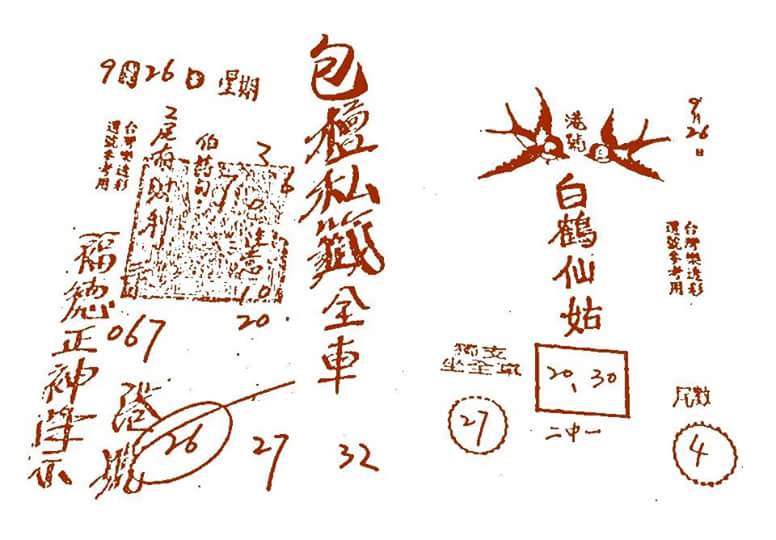 9月26日 星期
包壇私籤全車
伯公
注意
10
20
2尾有財利
台灣樂透彩
選號參考用
067
福德正神降示
港號
26
27
32
9月26日
港號
白鶴仙姑
台灣樂透彩
選號參考用
獨支
坐全車
27
20、30
二中一
尾數
4